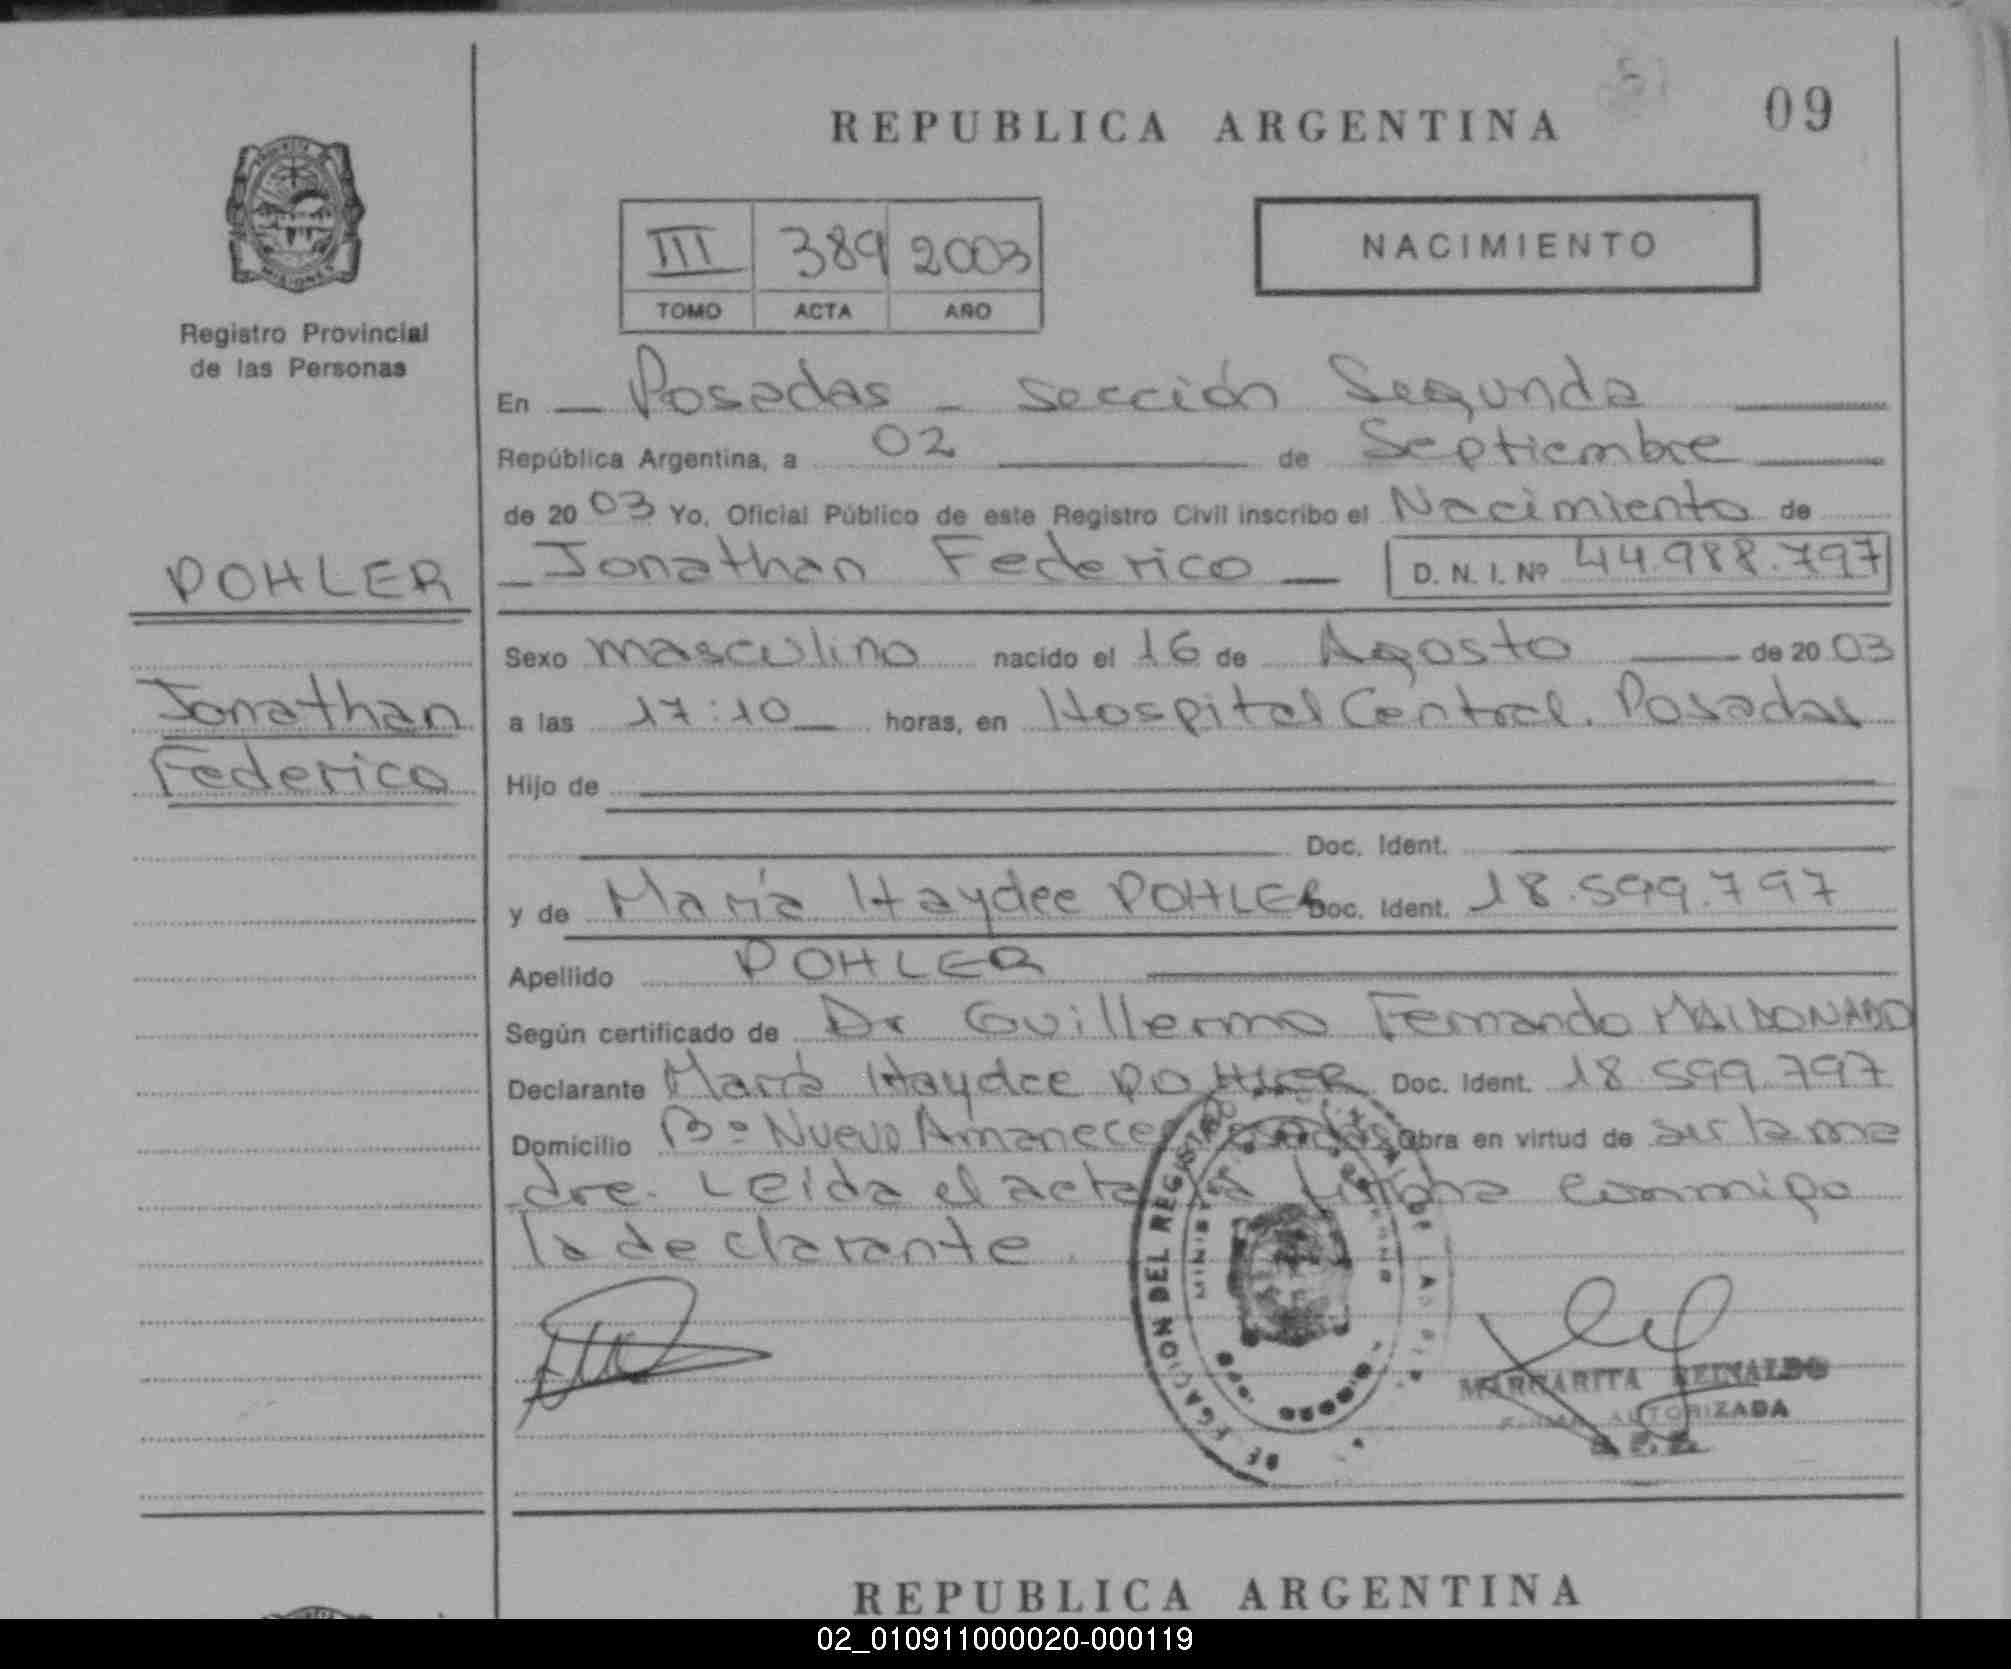 09
REPUBLICA ARGENTINA
NACIMIENTO
III 389 2003
TOMO ACTA AÑO
Registro Provincial
de las Personas
En Posadas - Sección Segunda
República Argentina, a 02 de Septiembre
de 20 03 Yo, Oficial Público de este Registro Civil inscribo el Nacimiento de
Jonathan Federico D. N. I. Nº 44.988.797
POHLER
Jonathan
Federico
Sexo masculino nacido el 16 de Agosto de 20 03
a las 17:10 horas, en Hospital Central. Posadas
Hijo de
Doc. Ident.
y de María Haydee POHLER Doc. Ident. 18.599.797
Apellido POHLER
Según certificado de Dr Guillermo Fernando MALDONADO
Declarante María Haydee POHLER Doc. Ident. 18.599.797
Domicilio Bº Nuevo Amanecer Posadas Obra en virtud de ser la ma
dre. Leida el acta la firma conmigo
la declarante.
DELEGACION DEL REGISTRO
MARGARITA REINALDO
FIRMA AUTORIZADA
REPUBLICA ARGENTINA
02_010911000020-000119